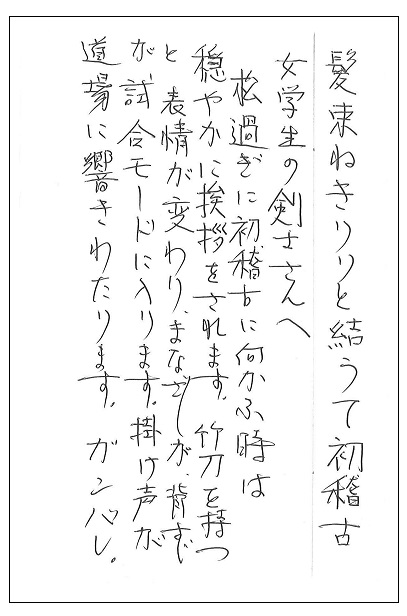 髪束ねきりりと結うて初稽古
女学生の剣士さんへ
松過ぎに初稽古に向かふ時は
穏やかに挨拶をされます。竹刀を持つ
と表情が変わり、まなざしが、背すじ
が試合モードに入ります。掛け声が
道場に響きわたります。ガンバレ。